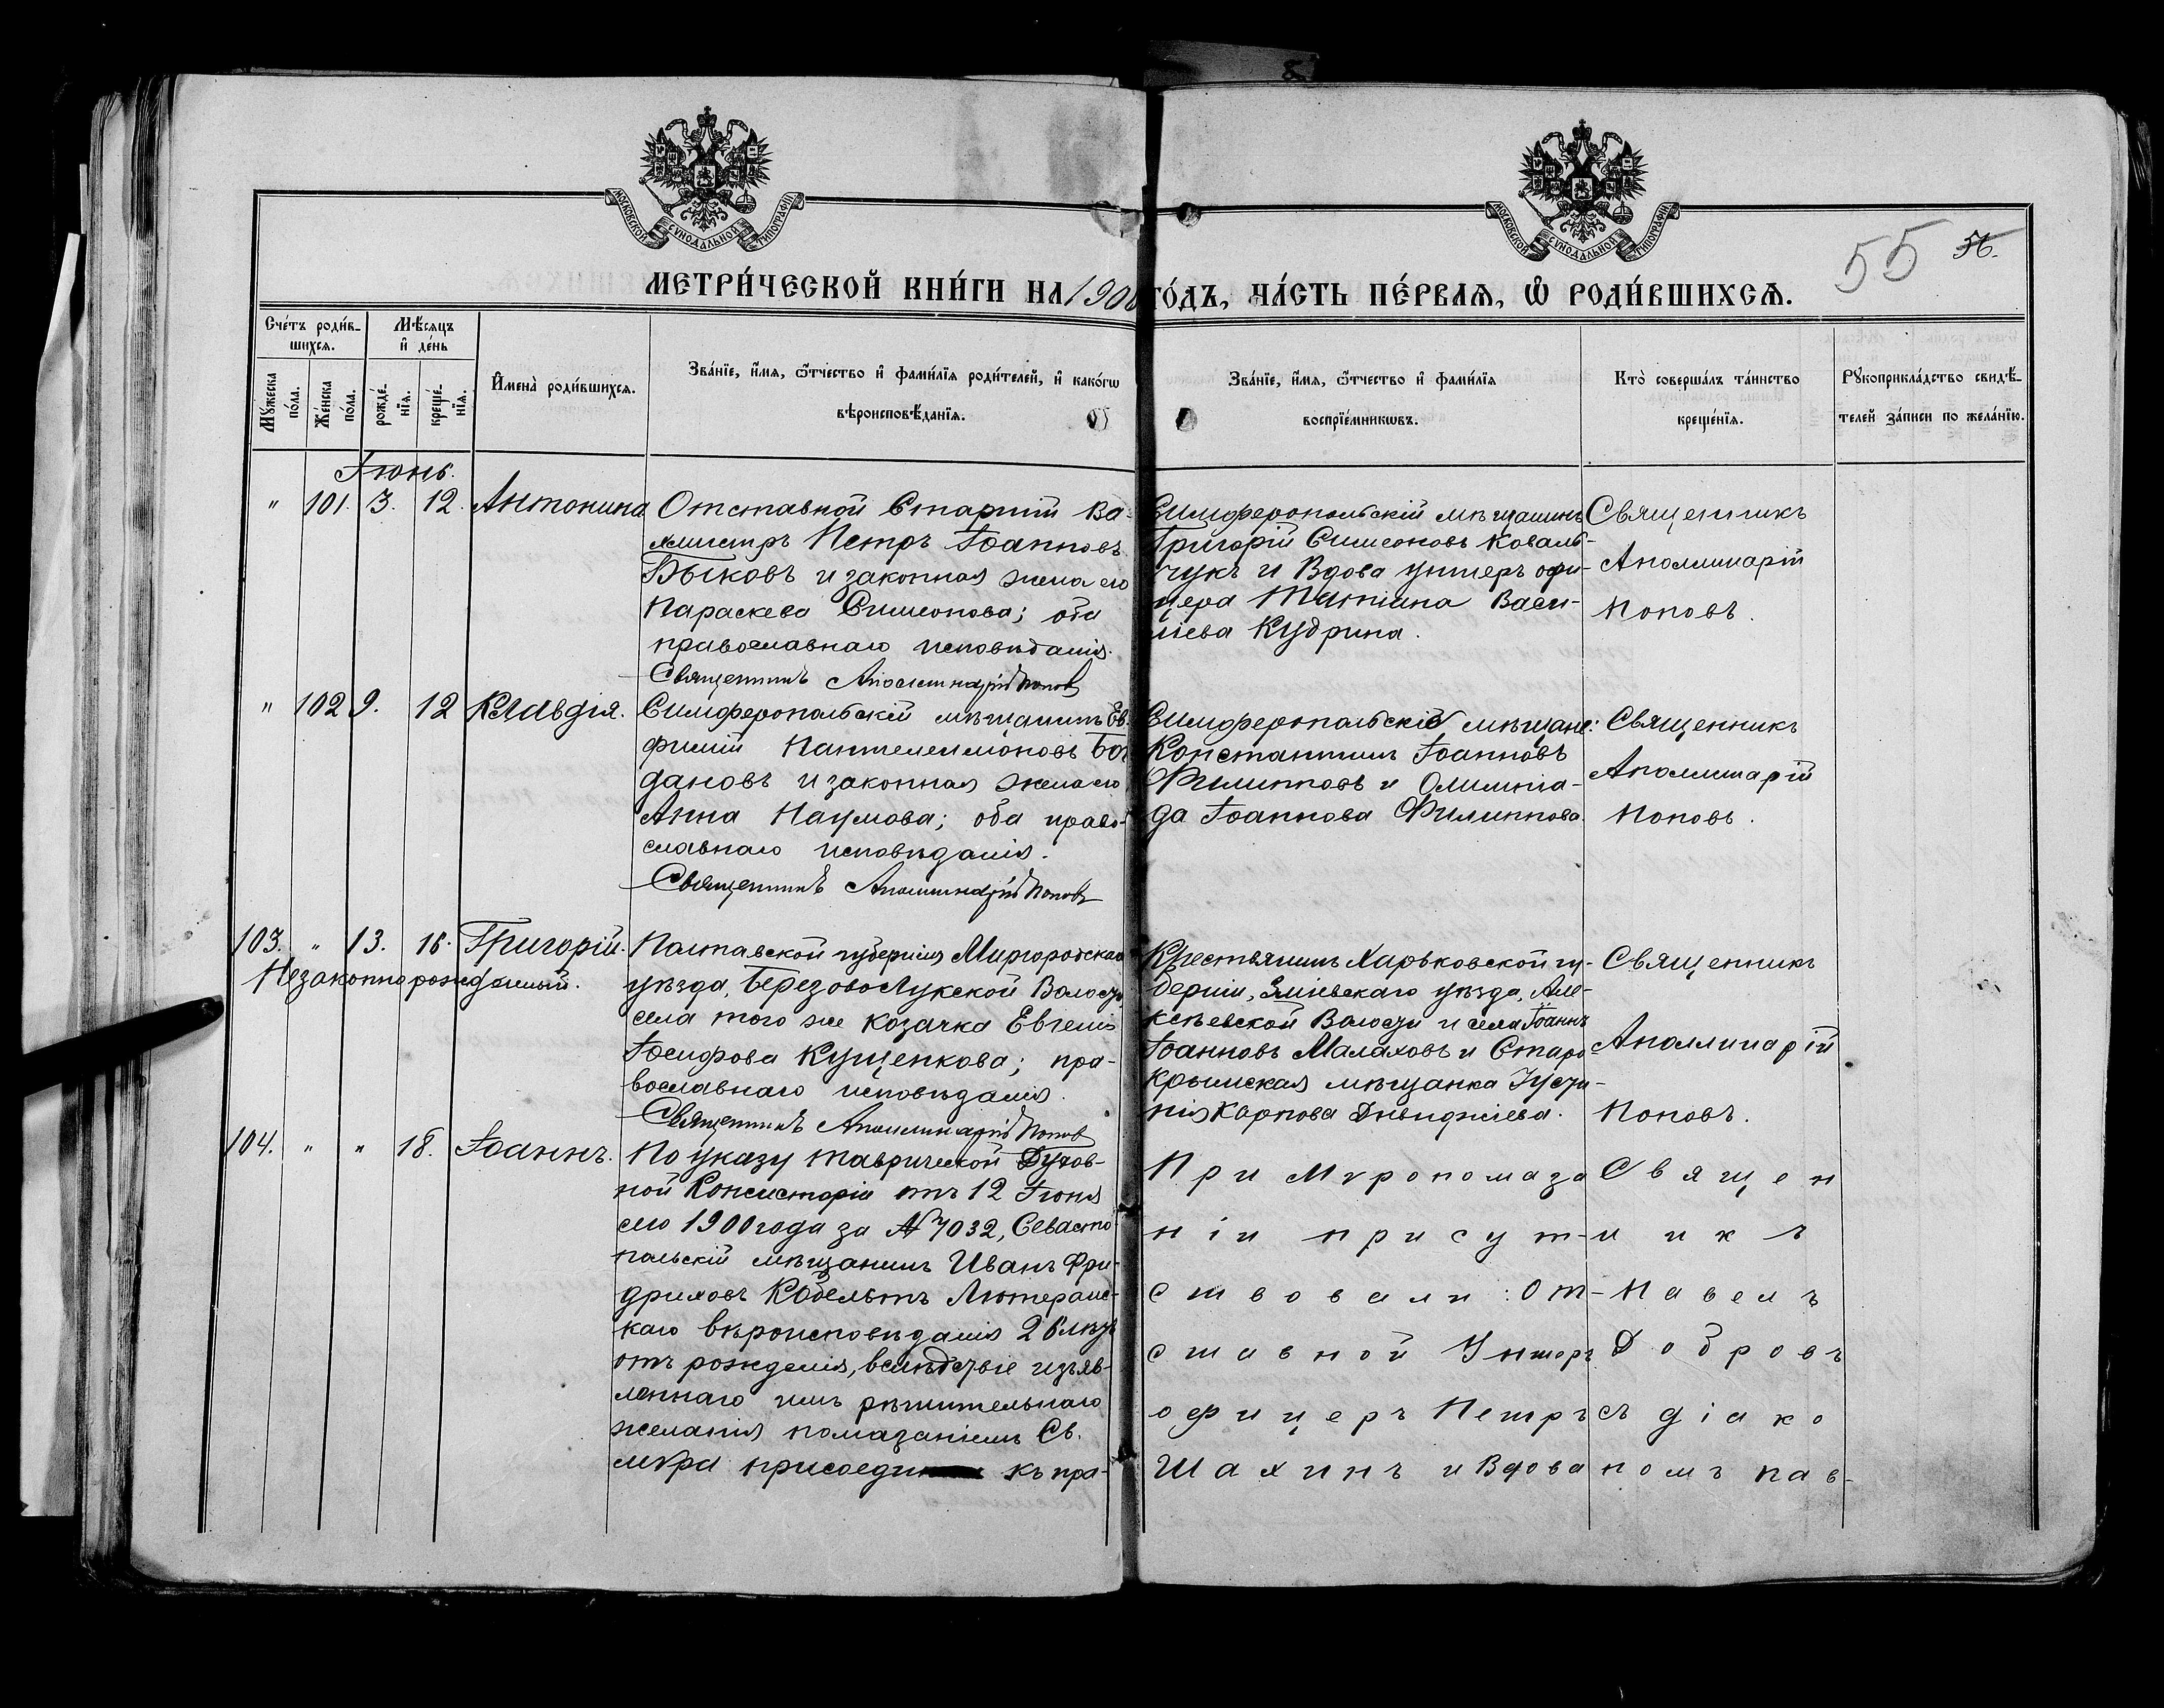 МОСКОВСКОЙ СѴНОДАЛЬНОЙ ТИПОГРАФІИ
МОСКОВСКОЙ СѴНОДАЛЬНОЙ ТИПОГРАФІИ
55 56.
МЕТРИ́ЧЕСКОЙ КНИ́ГИ НА 1900 ГО́ДЪ, ЧА́СТЬ ПЕ́РВАЯ, Ѽ РОДИ́ВШИХСЯ.
Сче́тъ роди́в-
шихся.
Мѣ́сяцъ
и҆ де́нь
Мꙋ́жеска
по́ла.
Же́нска
по́ла.
рожде́-
нїя.
креще́-
нїя.
И҆мена̀ роди́вшихся.
Зва́нїе, и҆́мя, ѻ҆́тчество и҆ фами́лїя роди́телей, и҆ како́гѡ
вѣроисповѣ́данїя.
Зва́нїе, и҆́мя, ѻ҆́тчество и҆ фами́лїя
воспрїе́мникѡвъ.
Кто̀ соверша́лъ та́инство
креще́нїя.
Рꙋкоприкла́дство свидѣ́-
телей за́писи по жела́нїю.
Іюнь.
" 101. 3. 12. Антонина
Отставной Старшій Ва-
хмистръ Петръ Іоанновъ
Быковъ и законная жена его
Параскева Симеонова; оба
православнаго исповѣданія.
Священникъ Аполлинарій Попов
Симферопольскій мѣщанинъ
Григорій Симеоновъ Коваль-
чукъ и Вдова унтеръ офи-
цера Татіана Васи-
ліева Кудрина.
Священникъ
Аполлинарій
Поповъ.
" 102 9. 12 Клавдія.
Симферопольскій мѣщанинъ Ев-
фимій Пантелеимоновъ Бог
дановъ и законная жена его
Анна Наумова; оба право-
славнаго исповѣданія.
Священникъ Аполлинарій Поповъ
Симферопольскіе мѣщане:
Константинъ Іоанновъ
Филипповъ и Олимпіа-
да Іоаннова Филиппова.
Священникъ
Аполлинарій
Поповъ.
103. " 13. 16. Григорій.
Незаконнорожденный.
Полтавской губерніи Миргородскаго
уѣзда, Березоволукской Волости
села того же козачка Евгенія
Іосифова Кущенкова; пра-
вославнаго исповѣданія.
Священникъ Аполлинарій Попов
Крестьянинъ Харьковской гу-
берніи, Зміевскаго уѣзда, Але-
ксѣевской Волости и села Іоаннъ
Іоанновъ Малаховъ и Старо-
крымская мѣщанка Іусти-
нія Карпова
Священникъ
Аполлинарій
Поповъ.
104. " " 18. Іоаннъ.
По указу Таврической Духов-
ной Консисторіи отъ 12 Іюня
сего 1900 года за № 7032, Севасто-
польскій мѣщанинъ Иванъ Фри-
дриховъ Кобельтъ Лютеранс-
каго вѣроисповѣданія 26 лѣтъ
отъ рожденія, вслѣдствіе изъяв-
леннаго имъ рѣшительнаго
желанія помазаніемъ Св.
мѵра присоедин къ пра-
При Мѵропомаза
ніи присут-
ствовали: От-
ставной Унтеръ
офицеръ Петръ
Шахинъ и Вдова
Священ
никъ
Павелъ
Добровъ
съ діако
номъ Пав-